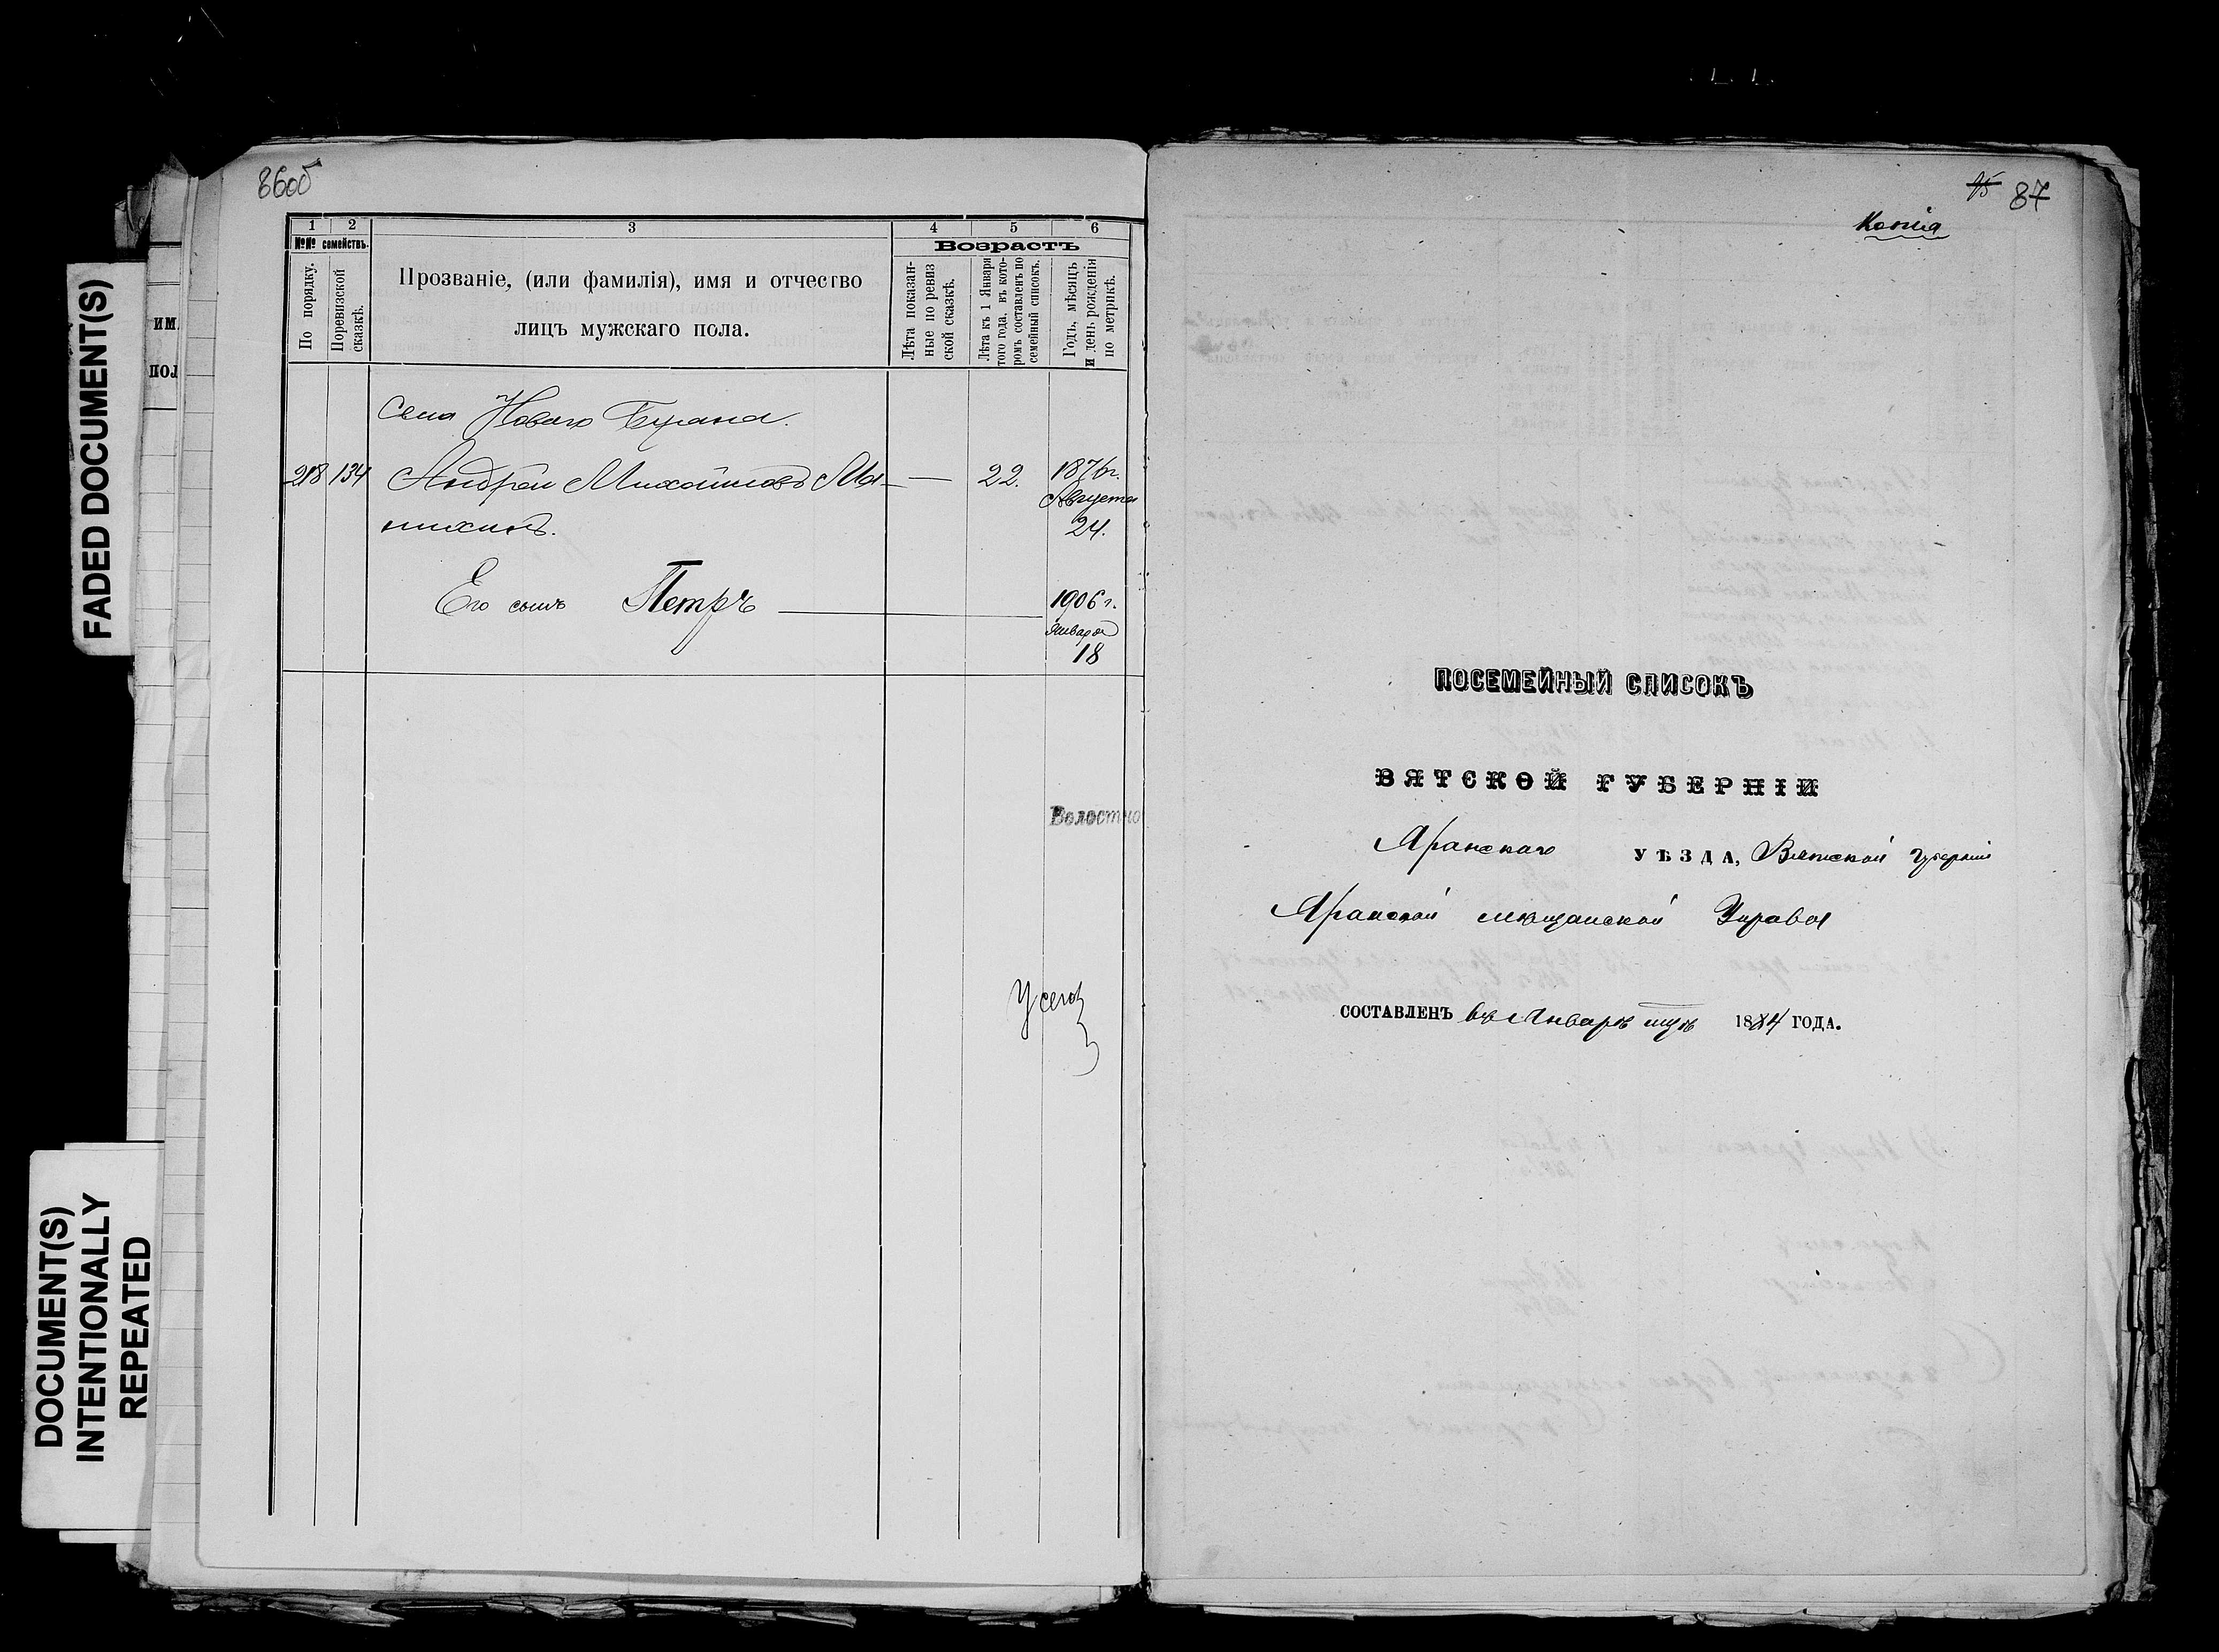 FADED DOCUMENT(S)
DOCUMENT(S)
INTENTIONALLY
REPEATED
ИМ
ПОЛ
86об
1 2 3 4 5 6
№№ семействъ.
Возрастъ
По порядку.
По ревизской сказкѣ.
Прозваніе, (или фамилія), имя и отчество
лицъ мужскаго пола.
Лѣта показан-
ные по ревиз
ской сказкѣ.
Лѣта къ 1 Января
того года, въ кото-
ромъ составленъ по
семейный списокъ.
Годъ, мѣсяцъ
и день рожденія
по метрикѣ.
Села Новаго Буяна.
218 134 Андрей Михайловъ Ма- — 22. 1876г.
Августа
нихинъ. 24.
Его сынъ Петръ 1906 г.
Января
18
Волостно
У сего
15 87
Копія
ПОСЕМЕЙНЫЙ СПИСОКЪ
ВЯТСКОЙ ГУБЕРНІИ
Яранскаго УѢЗДА, Вятской губерніи
Яранской мѣщанской Управы
СОСТАВЛЕНЪ въ Январѣ мцѣ 1884 ГОДА.